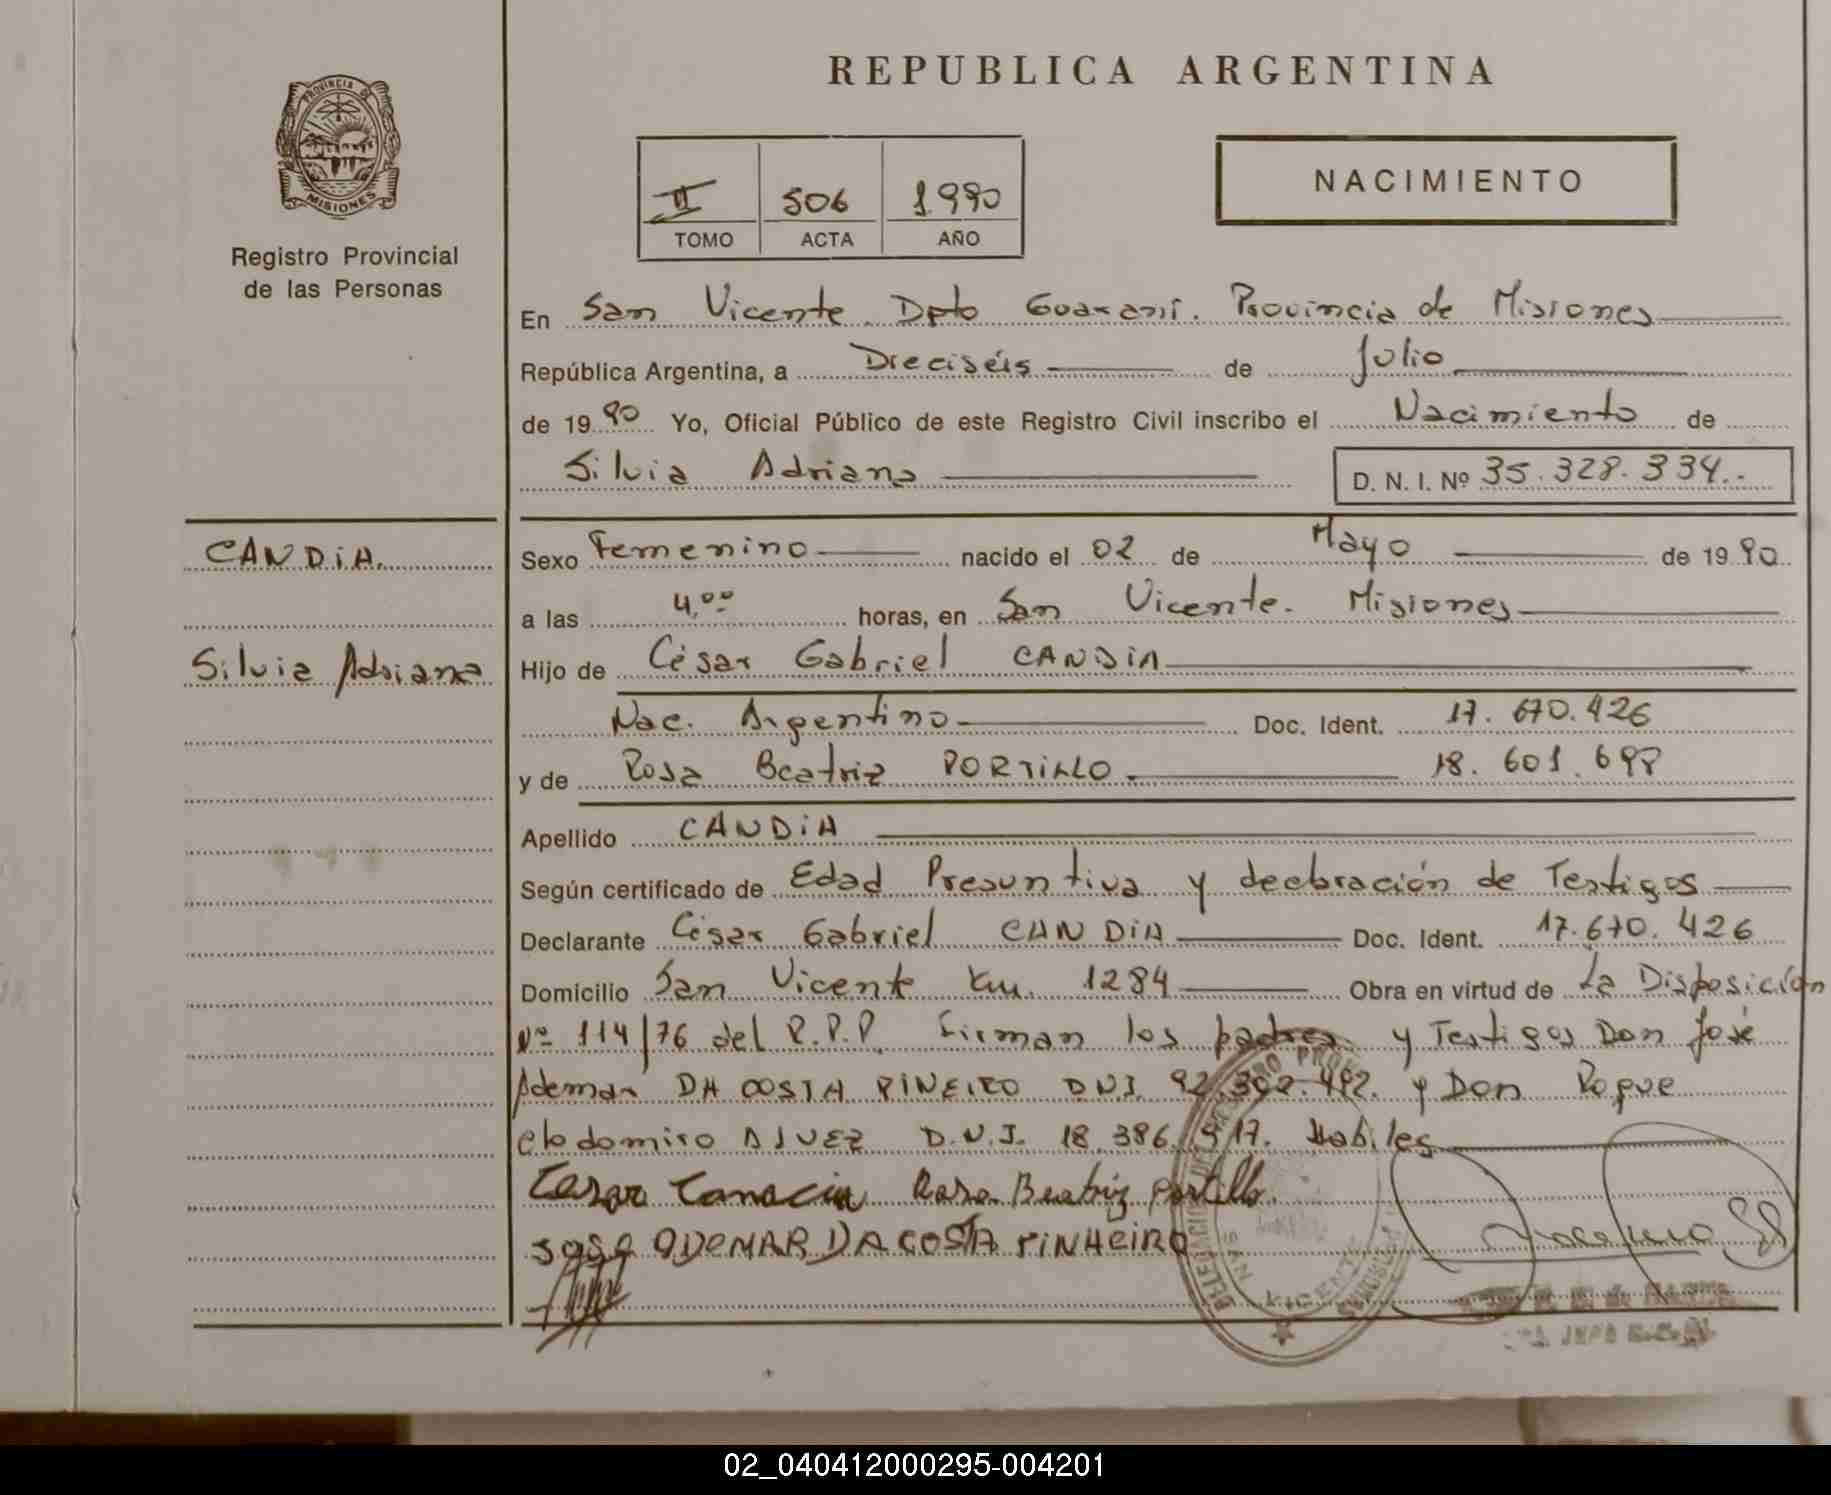 REPUBLICA ARGENTINA
PROVINCIA DE
MISIONES
Registro Provincial
de las Personas
II 506 1.990
TOMO ACTA AÑO
NACIMIENTO
En San Vicente. Dpto Guaraní. Provincia de Misiones
República Argentina, a Dieciséis de Julio
de 19 90 Yo, Oficial Público de este Registro Civil inscribo el Nacimiento de
Silvia Adriana D. N. I. Nº 35.328.334.-
CANDIA.
Silvia Adriana
Sexo Femenino nacido el 02 de Mayo de 19 90
a las 4,00 horas, en San Vicente. Misiones
Hijo de César Gabriel CANDIA
Nac. Argentino Doc. Ident. 17.670.426
y de Rosa Beatriz PORTILLO. 18.601.698
Apellido CANDIA
Según certificado de Edad Presuntiva y declaración de Testigos
Declarante César Gabriel CANDIA Doc. Ident. 17.670.426
Domicilio San Vicente Km. 1284 Obra en virtud de La Disposición
Nº 114/76 del R.P.P. Firman los padres y Testigos Don José
Ademar DA COSTA PINEIRO D.N.I. 92.302.492. y Don Roque
Clodomiro ALVEZ D.N.I. 18.386.917. Habiles
Cesar Rosa Beatriz Portillo.
José ODEMAR DA COSTA PINHEIRO
DELEGACION DEL REGISTRO
SAN VICENTE
MISIONES
02_040412000295-004201